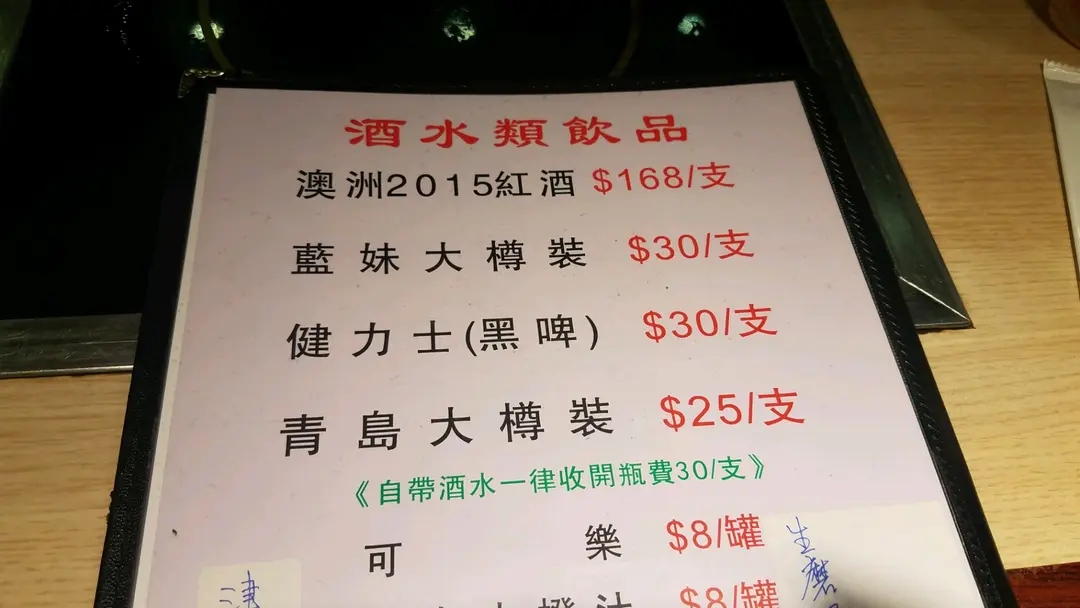 酒水類飲品
澳洲2015紅酒 $168/支
藍妹大樽裝 $30/支
健力士(黑啤) $30/支
青島大樽裝 $25/支
《自帶酒水一律收開瓶費30/支》
可樂 $8/罐
橙汁 $8/罐
生磨